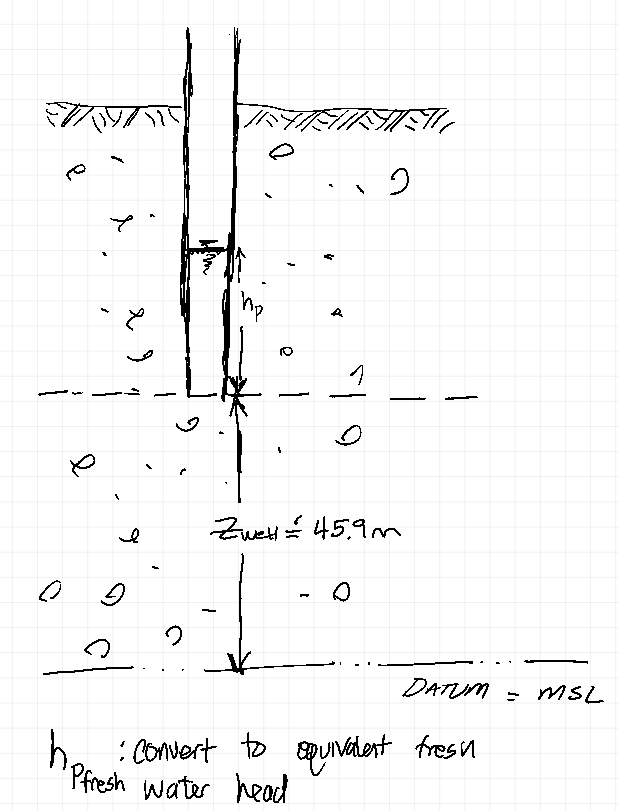 hp
Zwell = 45.9m
DATUM = MSL
hpfresh : convert to equivalent fresh
water head